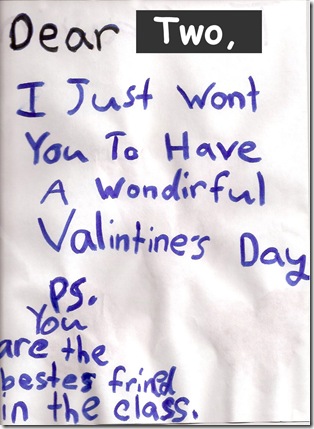 Dear Two,
I Just Wont
You To Have
A Wondirful
Valintine's Day
PS.
You
are the
bestes frined
in the class.